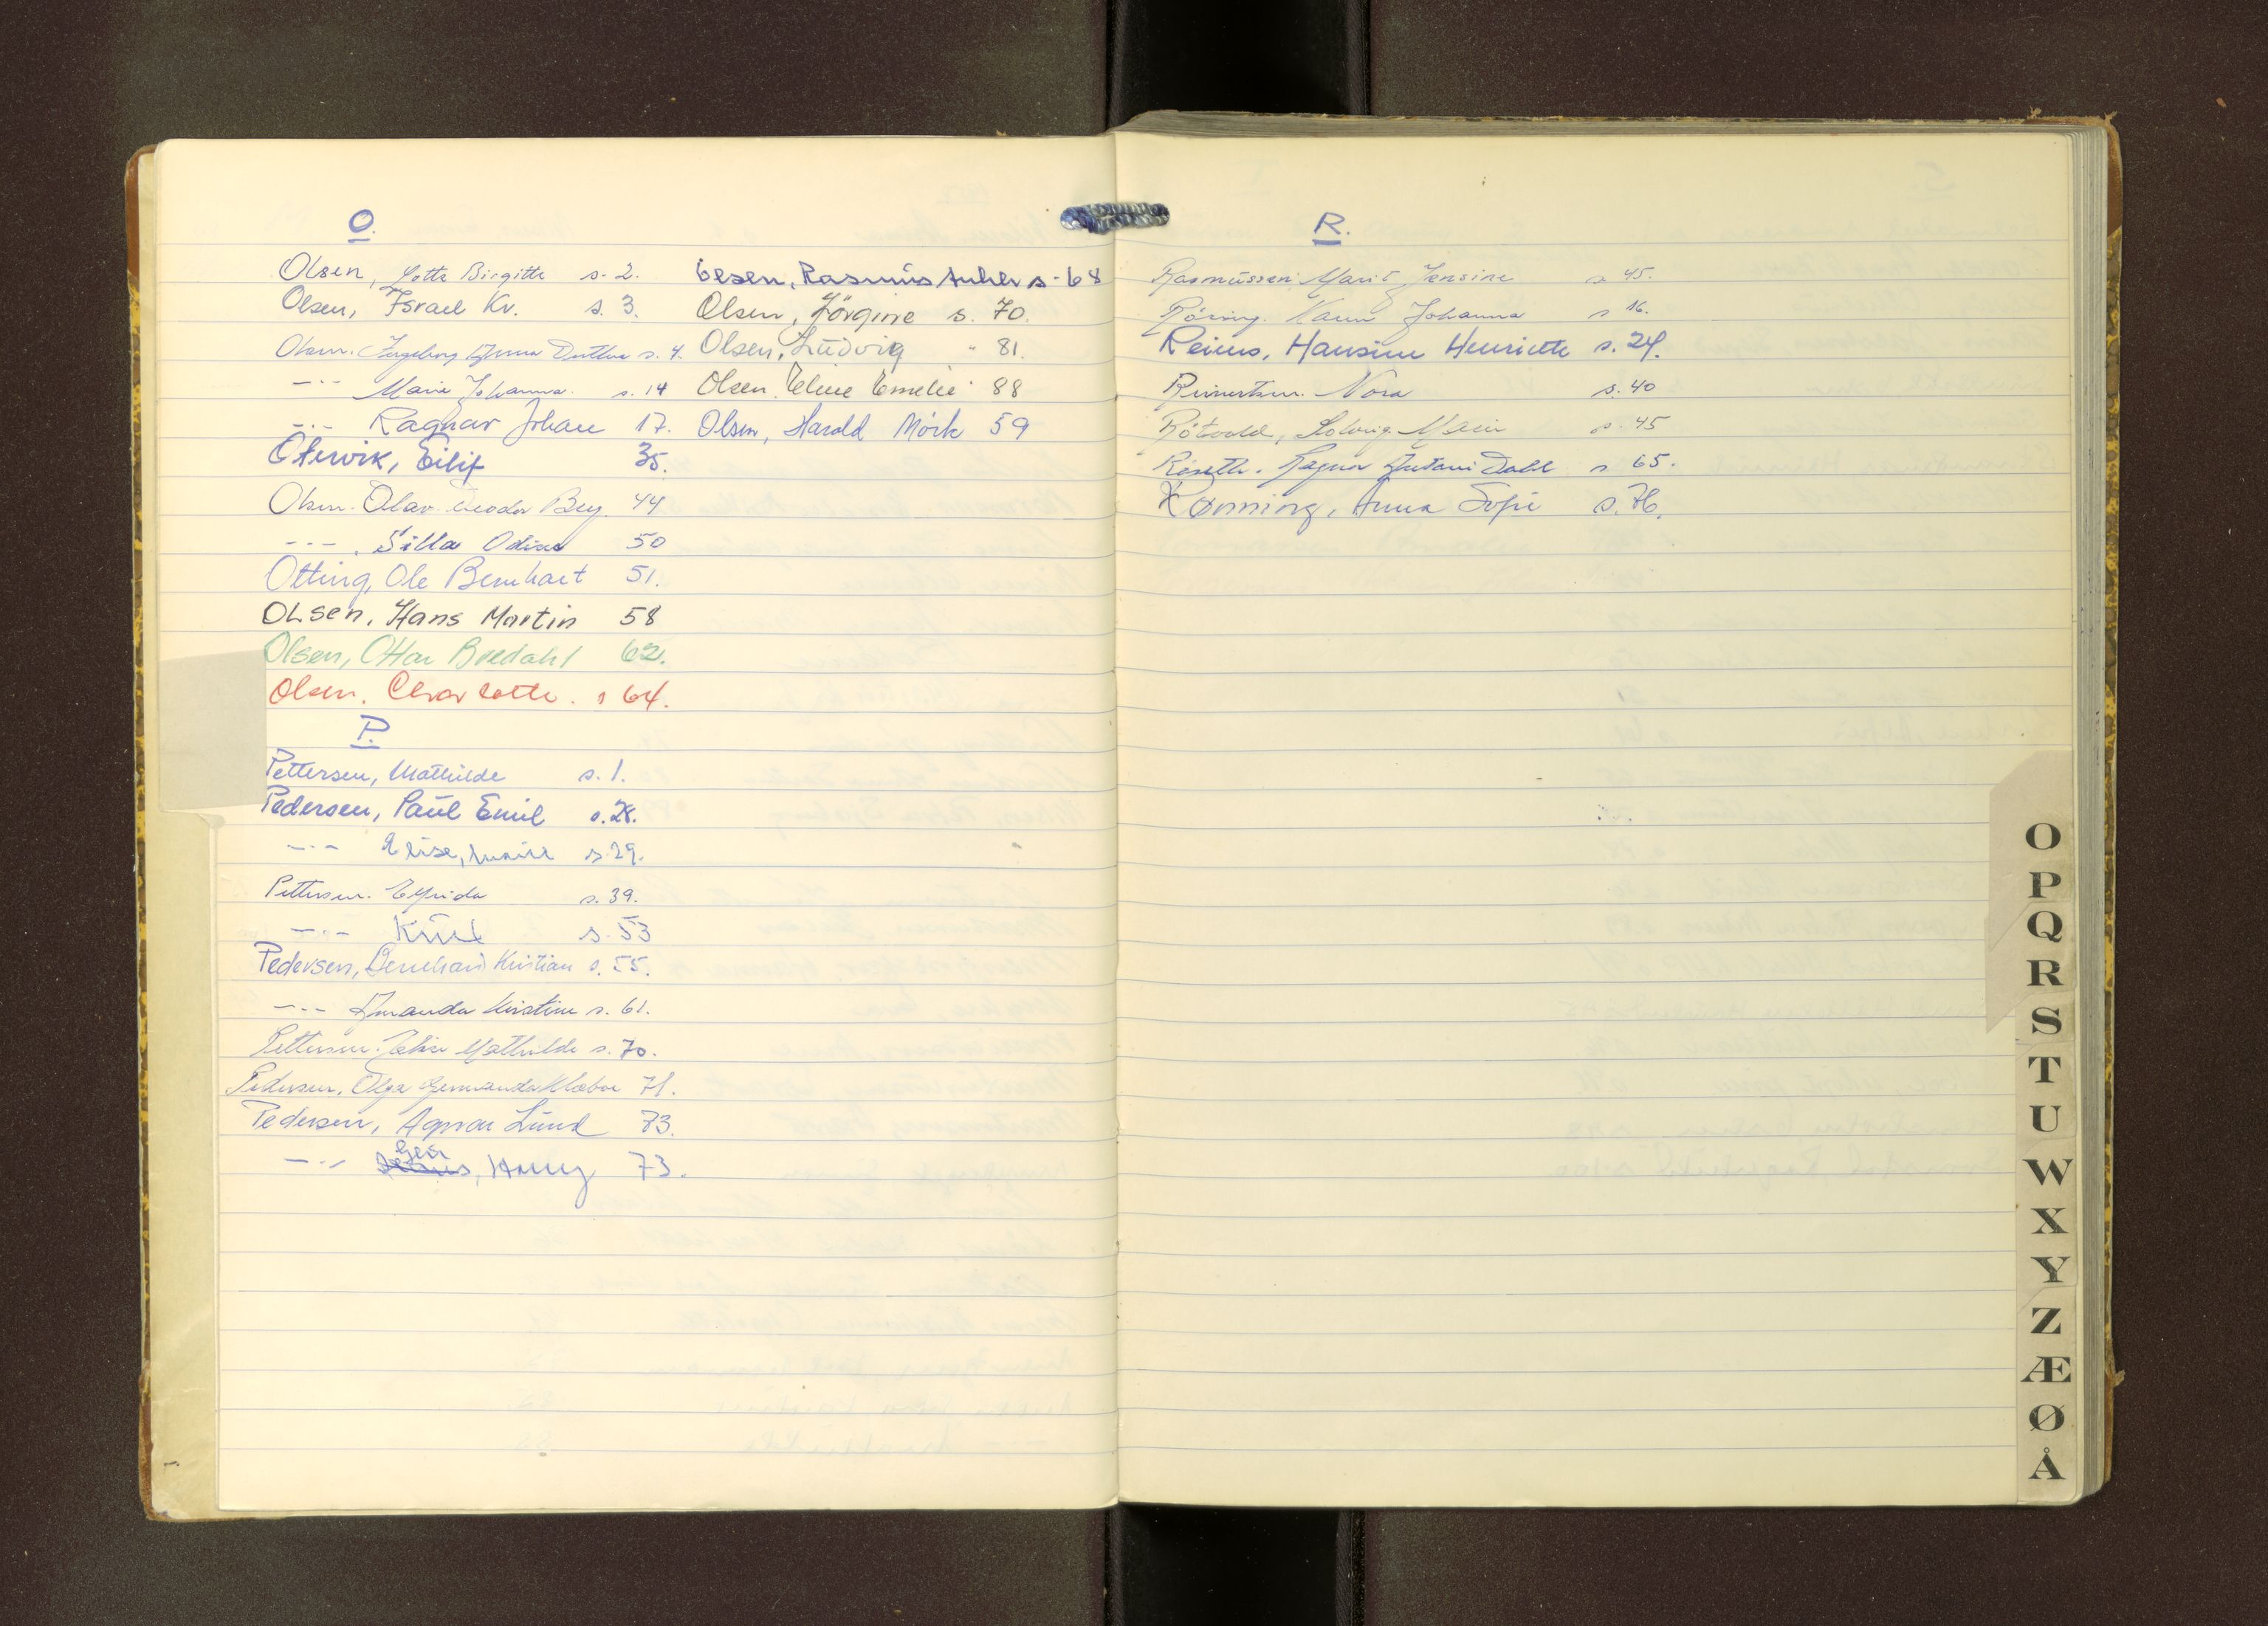 O.
Olsen, Lotte Birgitte s. 2.
Olsen, Israel Kv. s. 3.
Olsen. Ingeborg Anna Dorthea s. 4.
-"- Marie Johanna. s. 14
-"- Ragnar Johan 17.
Otervik, Eilif 35.
Olsen. Olav Teodor Berg. 44
-"- Silla Odine 50
Otting, Ole Bernhart 51.
Olsen, Hans Martin 58
Olsen, Ottar Bredahl 62.
Olsen. Charlotte. s 64.
Olsen, Rasmus s. 68
Olsen, Jörgine s. 70.
Olsen, Ludvig " 81.
Olsen Eline Emelie 88
Olsen, Harald Mörk 59
P.
Pettersen, Mathilde s. 1.
Pedersen, Paul Emil s. 28.
-"- Elise, s. 29.
Pettersen. s. 39.
-"- Knut s. 53
Pedersen, Bernhard Kristian s. 55.
-"- Amanda Kirstine s. 61.
Pettersen. Mathilde s. 70.
Pedersen. Olga Klæboe 71.
Pedersen, Agnar Lund 73.
-"- Geir, Harry 73.
R.
Rasmussen, Marit Jensine s. 45.
Röring. Karen Johanna s 16.
Reines, Hansine Henriette s. 24.
Reinertsen. Nora s. 40
Rötvold, Solveig Marie s. 45
Röseth. Ragna Antani Dahl s 65.
Rønning, Anna Sofie s. 76.
O
P
Q
R
S
T
U
W
X
Y
Z
Æ
Ø
Å